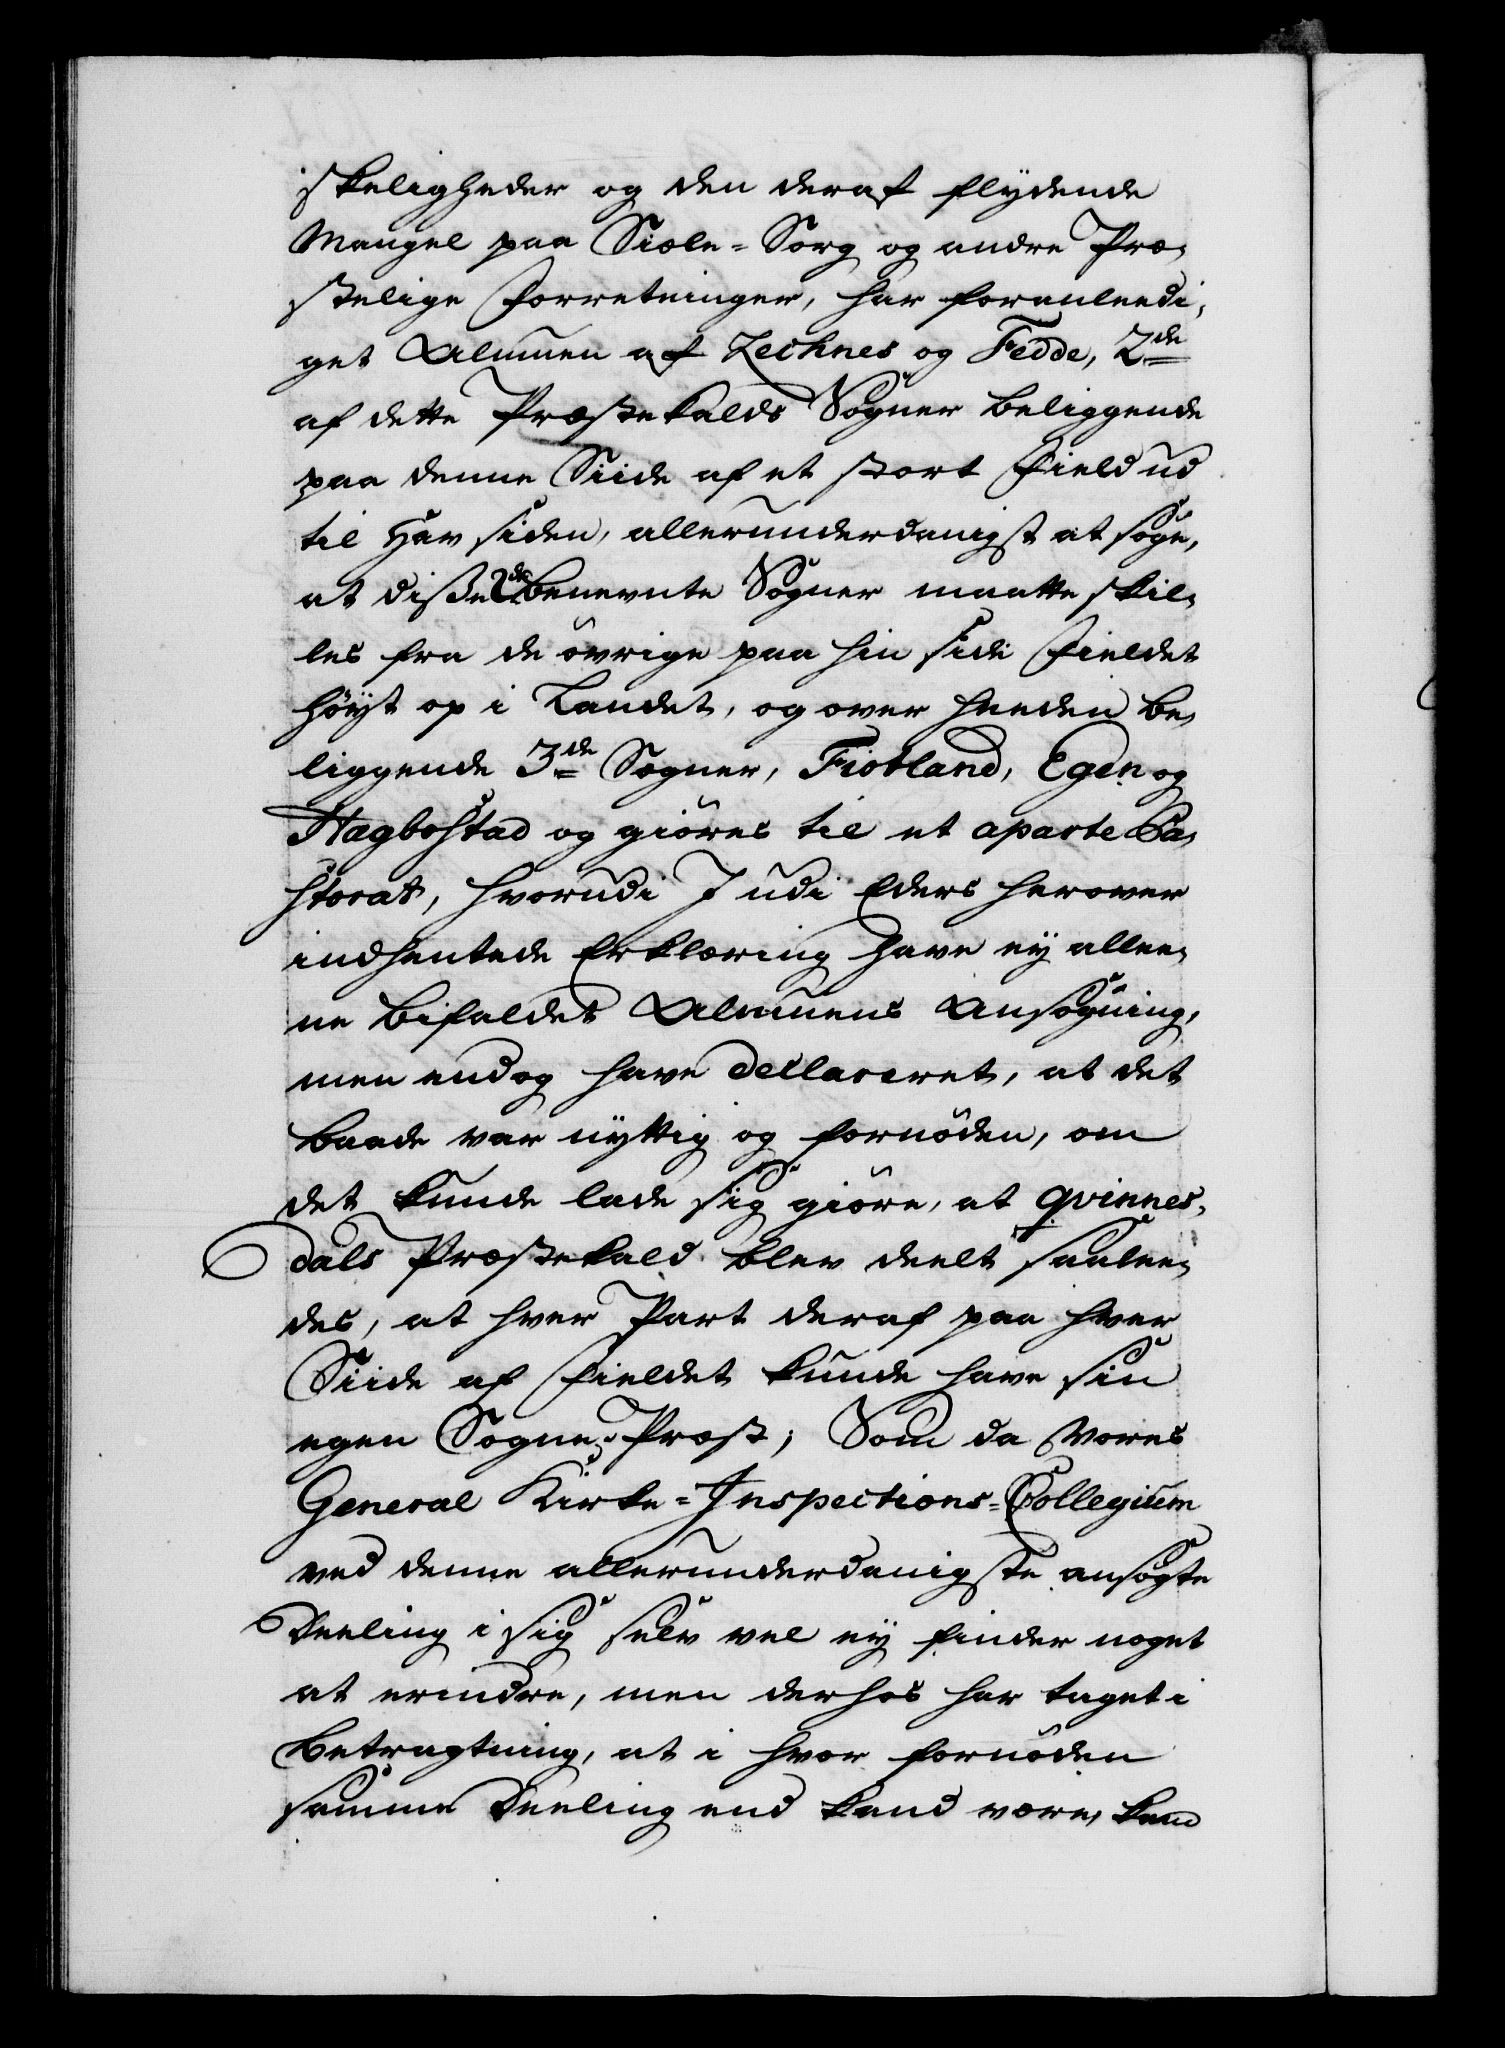 skeligheder og den deraf flydende
Mangel paa Siæle-Sorg og andre Præ-
stelige Forretninger, har foranleedi-
get Almuen af Lechnes og Fedde, 2de
af dette Præstekalds Sogner beliggende
paa denne Siide af et stort Field ud
til Hav siden, allerunderdanigst at søge,
at disse 2de benevnte Sogner maatte skil-
les fra de øvrige paa hin side Fieldet
høyt op i Landet, og over heeden be-
liggende 3de Sogner, Fiotland, Egen og
Hægbostad og giöres til et aparte Pa-
storat, hvorudi I udi Eders herover
indhentede Erklæring have ey allee-
ne bifaldet Almuens Ansøgning,
men endog have declareret, at det
baade var nyttig og fornöden, om
det kunde lade sig giöre, at Qvinnes-
dals Præstekald blev deelt saalee-
des, at hver Part deraf paa hver
Siide af Fieldet kunde have sin
egen Sogne-Præst; Som da Vores
General Kirke-Inspections-Collegium
ved denne allerunderdanigste ansøgte
Deeling i sig selv vel ey finder noget
at erindre, men derhos har taget i
Betragtning, at i hvor fornöden
samme Deeling end kand være, kand